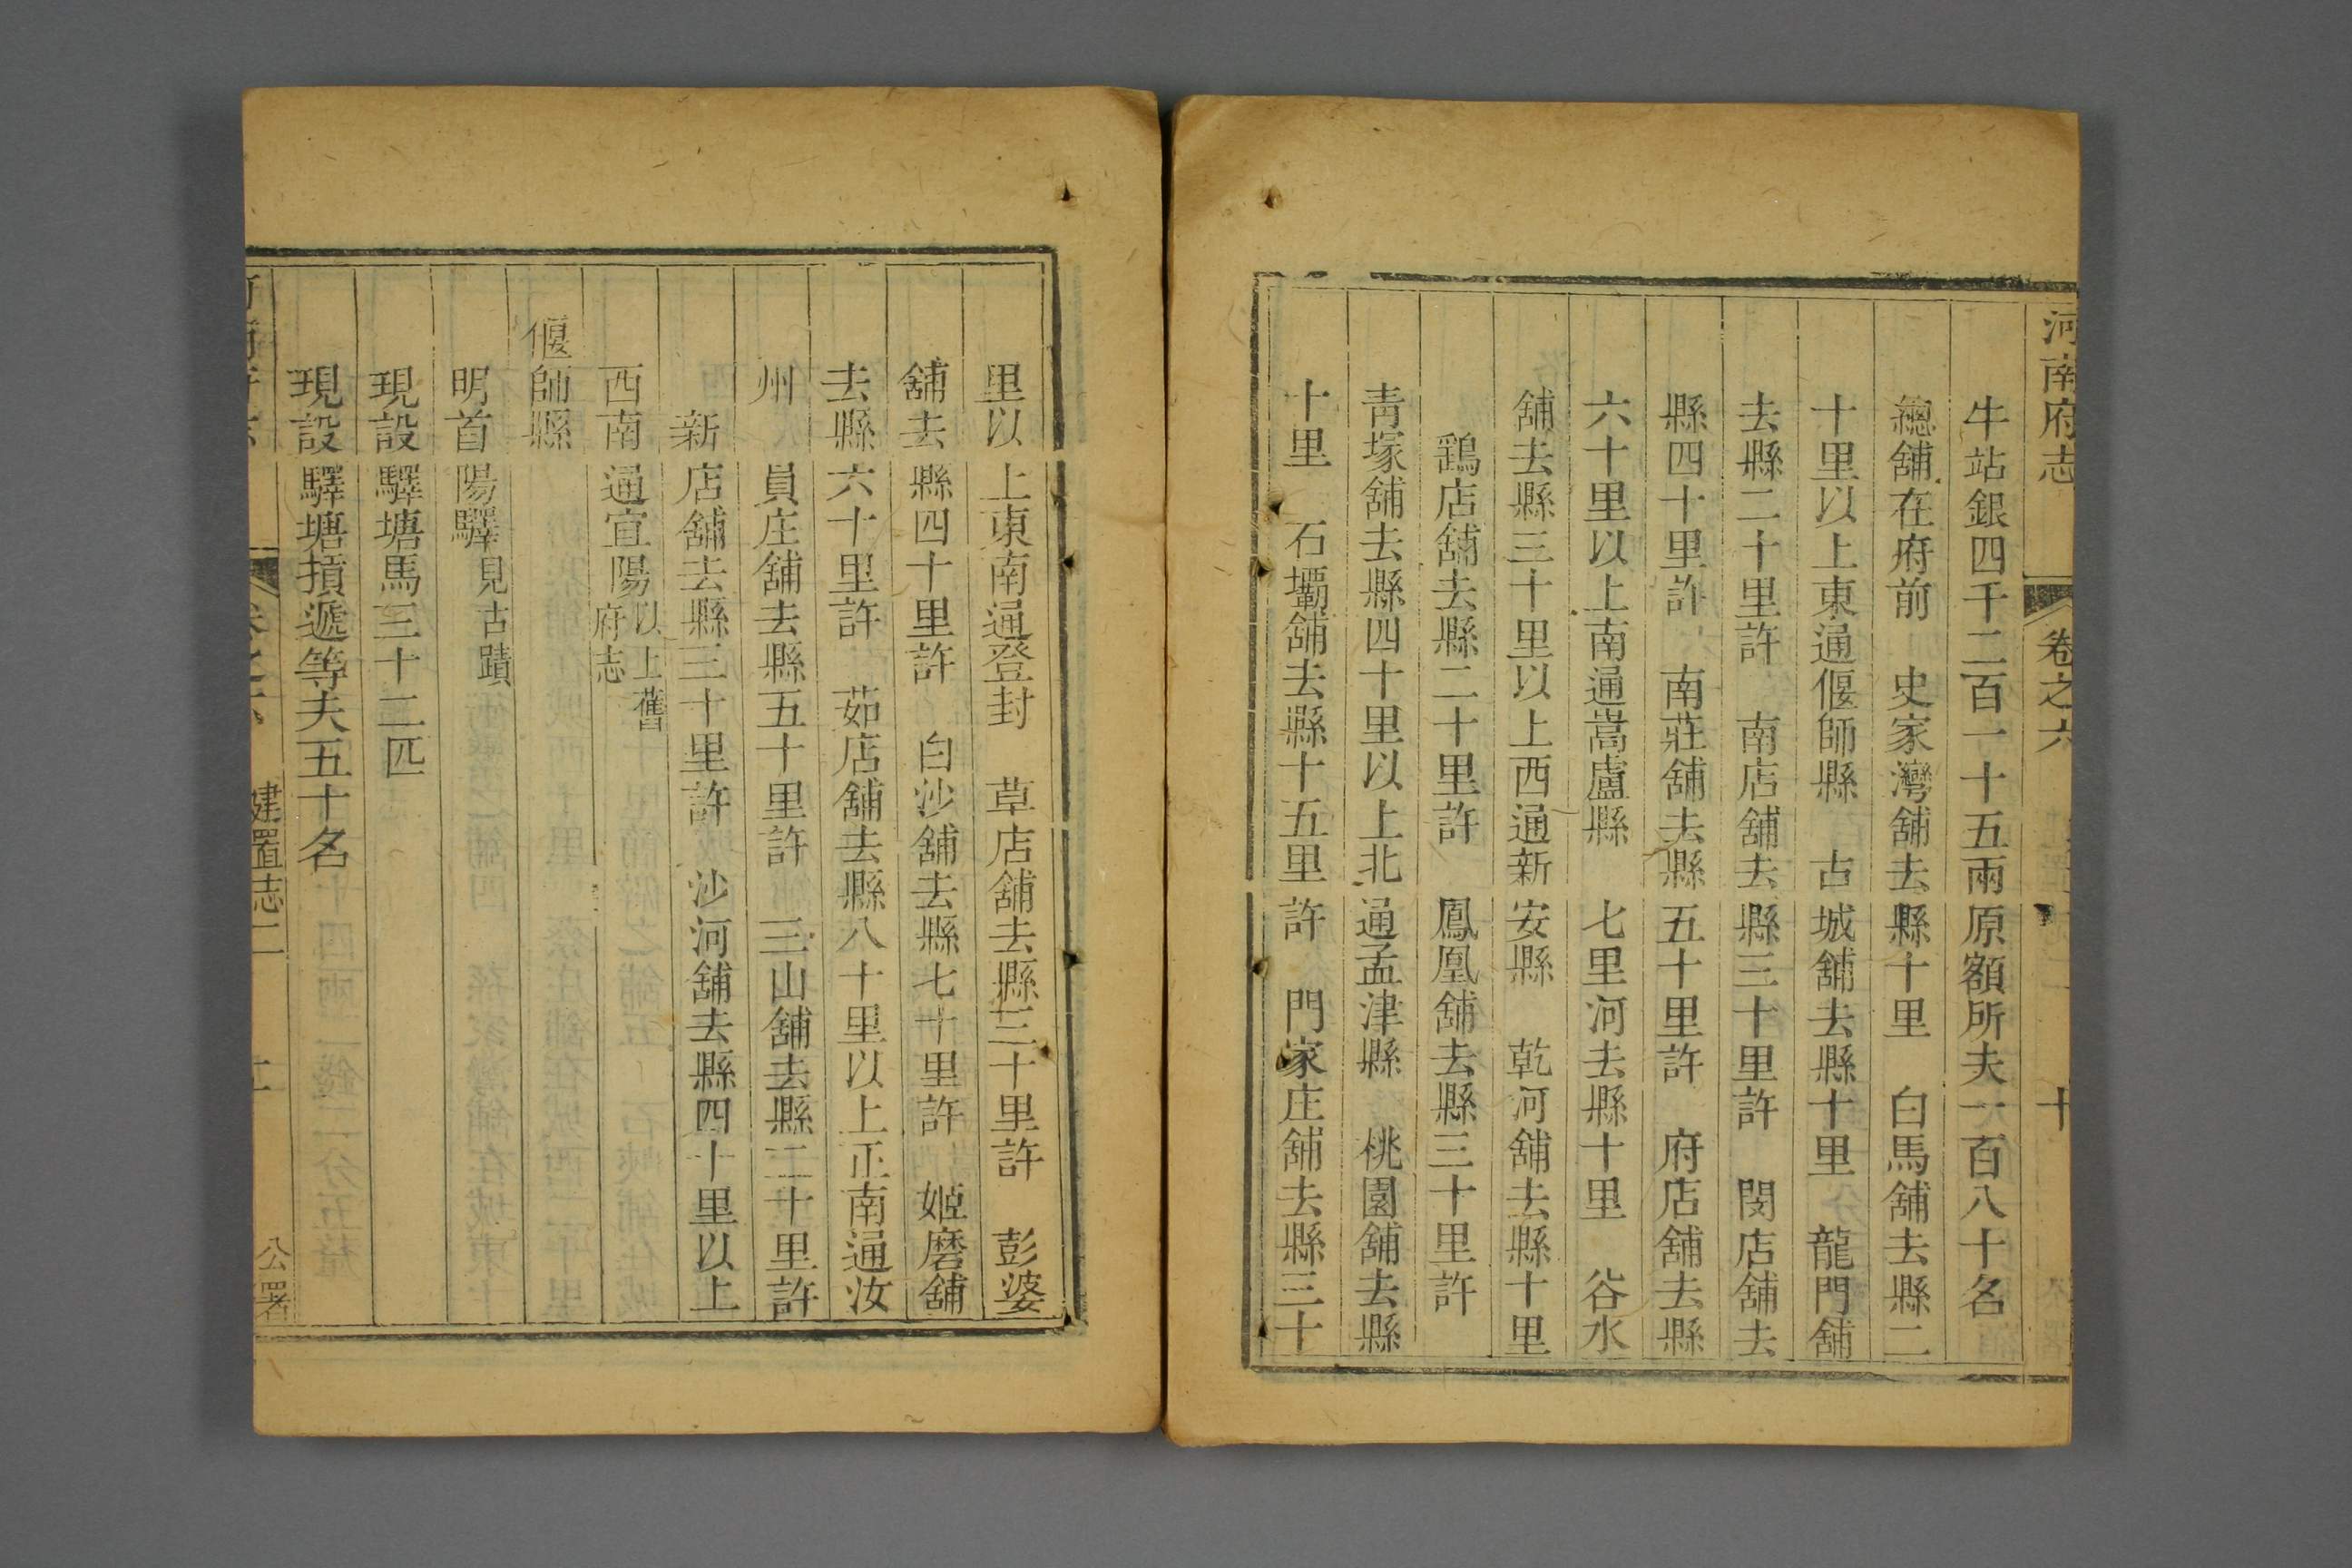 河南府志　卷之六　十
牛站銀四千二百一十五兩原額所夫一百八十名
總舖在府前　史家灣舖去縣十里　白馬舖去縣二
十里以上東通偃師縣　古城舖去縣十里　龍門舖
去縣二十里許　南店舖去縣三十里許　閔店舖去
縣四十里許　南莊舖去縣五十里許　府店舖去縣
六十里以上南通嵩盧縣　七里河去縣十里　谷水
舖去縣三十里以上西通新安縣　乾河舖去縣十里
鵶店舖去縣二十里許　鳳凰舖去縣三十里許
青塚舖去縣四十里以上北通孟津縣　桃園舖去縣
十里　石壩舖去縣十五里許　門家庄舖去縣三十
里以上東南通登封　草店舖去縣三十里許　彭婆
舖去縣四十里許　白沙舖去縣七十里許　姬磨舖
去縣六十里許　茹店舖去縣八十里以上正南通汝
州　員庄舖去縣五十里許　三山舖去縣二十里許
新店舖去縣三十里許　沙河舖去縣四十里以上
西南通宜陽以上舊府志
偃師縣
明首陽驛見古蹟
現設驛塘馬三十二匹
現設驛塘摃遞等夫五十名
建置志二　公署